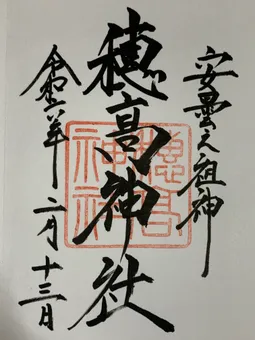 安曇之祖神
穂高神社
穂高
神社
二月十三日